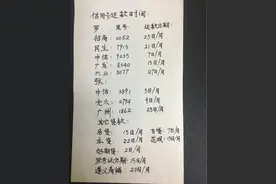 信用卡还款时间:
罗: 尾号: 还款日期:
招商 6062 25日/月
民生 7915 21日/月
中信 9035 7日/月
广发 8040 15日/月
兴业 3077 27日/月
张:
中信 3891 5日/月
光大 2794 9日/月
广州 1862 25日/月
其它贷款:
房贷 15日/月 万贷 7日/月
车贷 22日/月 花呗 15日/月
好期贷 2日/月
罗 分期 15日/月
遵义房租 20日/月